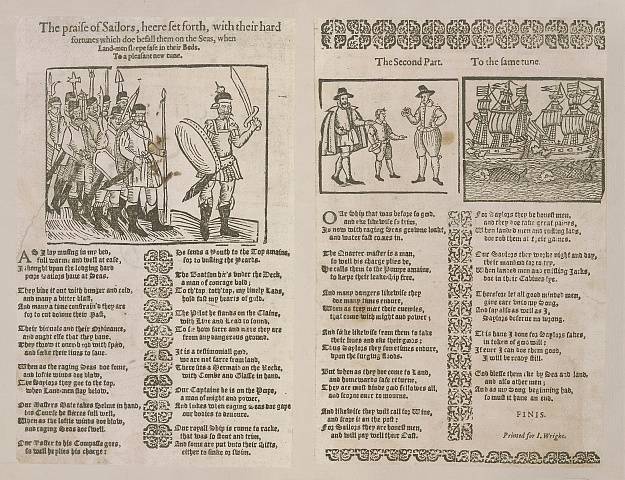 The praise of Sailors, heere set forth, with their hard
fortunes which doe befall them on the Seas, when
Land-men sleepe safe in their Beds.
To a pleasant new tune.
AS I lay musing in my bed,
full warm and well at ease,
I thought upon the lodging hard
poore Sailors have at Seas.
They bide it out with hunger and cold,
and many a bitter blast,
And many a time constrain'd they are
for to cut downe their Mast,
Their victuals and their Ordinance,
and ought else that they have,
They throw it overboord with speed,
and seeke their lives to save.
When as the raging Seas doe fome,
and loftie winds doe blow,
The Saylors they goe to the top,
when Land-men stay below.
Our Masters Mate takes Helme in hand,
his Course he steeres full well,
When as the loftie winds doe blow,
and raging Seas doe swell.
Our Master to his Compasse goes,
so well he plies his charge:
He sends a Youth to the Top amaine,
for to unsling the Yeards.
The Boatson he's under the Deck,
a man of courage bold;
To th'top, to th'top, my lively Lads,
hold fast my hearts of gold.
The Pilot he stands on the Chaine,
with Line and Lead to sound,
To see how farre and neere they are
from any dangerous ground.
It is a testimoniall good,
we are not farre from land,
There sits a Mermaid on the Rocke,
with Combe and Glasse in hand.
Our Captaine he is on the Poope,
a man of might and power,
And lookes when raging Seas doe gape
our bodies to devoure.
Our royall Ship is runne to racke,
that was so stout and trim,
And some are put unto their shifts,
either to sinke or swim.
The Second Part. To the same tune.
OUr Ship that was before so good,
and eke likewise so trim,
Is now with raging Seas growne leakt,
and water fast comes in.
The Quarter-master is a man,
so well his charge plies he,
He calls them to the Pompe amaine,
to keepe their leake-ship free.
And many dangers likewise they
doe many times endure,
When as they meet their enemies,
that come with might and power;
And seeke likewise from them to take
their lives and eke their goods:
Thus Saylors they sometimes endure,
upon the surging floods.
But when as they doe come to Land,
and homewards safe returne,
They are most kinde good fellowes all,
and scorne ever to mourne.
And likewise they will call for Wine,
and score it on the post:
For Sailors they are honest men,
and will pay well their Oast.
For Saylors they be honest men,
and they doe take great paines,
When landed men and ruffling lads,
doe rob them of their gaines.
Our Saylors they worke night and day,
their manhood for to try,
When landed men and ruffling Jacks,
doe in their Cabines lye.
Therefore let all good minded men,
give eare unto my Song,
And say also as well as I,
Saylors deserve no wrong.
This have I done for Saylors sakes,
in token of good will:
If ever I can doe them good,
I will be ready still.
God blesse them eke by Sea and land,
and also other men;
And as my Song beginning had,
so must it have an end.
FINIS.
Printed for I. Wright.